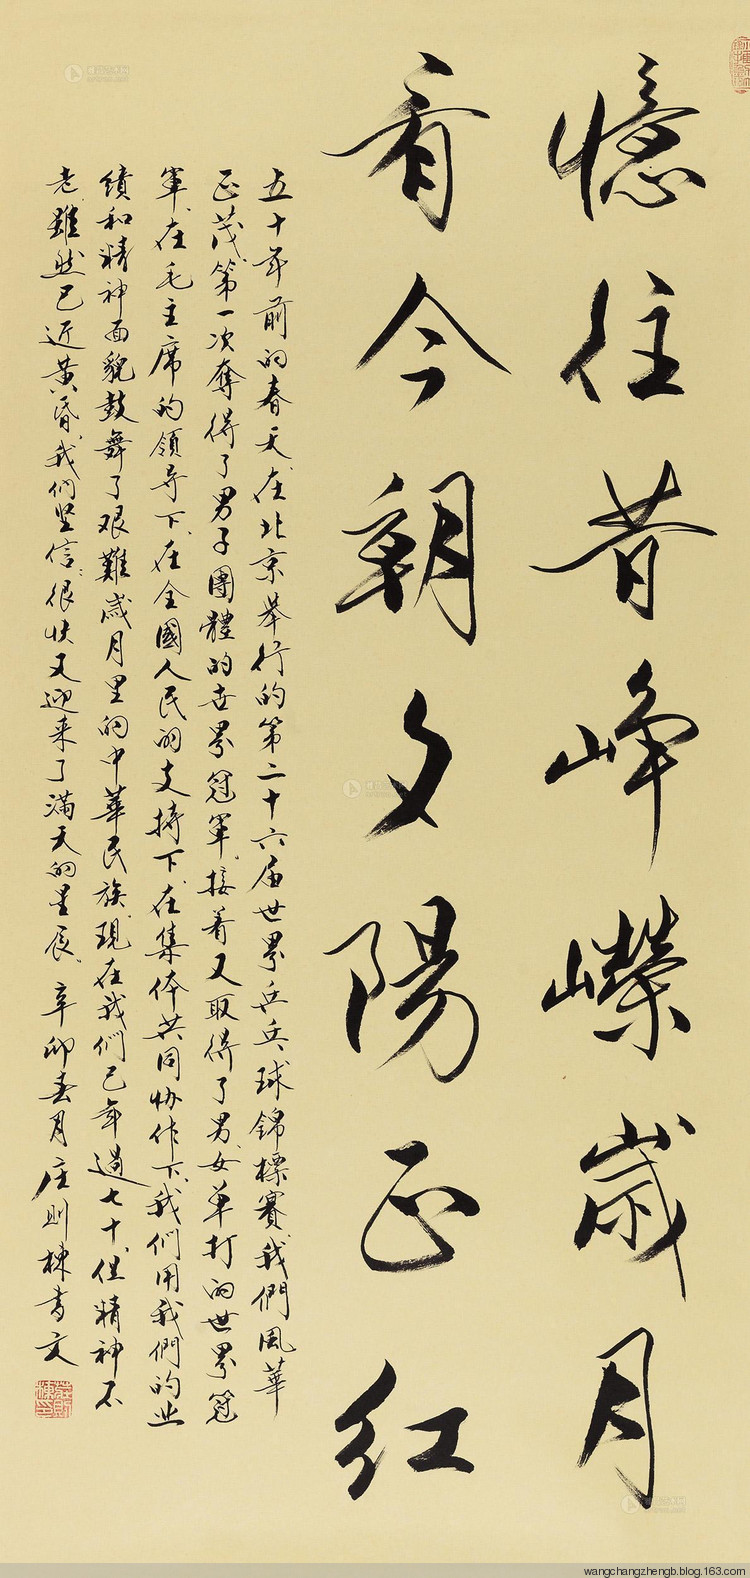 憶往昔峥嶸歲月
看今朝夕陽正红
五十年前的春天在北京举行的第二十六届世界乒乓球錦標赛我們風華
正茂第一次奪得了男子團體的世界冠軍接着又取得了男女单打的世界冠
軍在毛主席的領导下在全國人民的支持下在集体共同协作下我們用我們的业
績和精神面貌鼓舞了艰難歲月里的中華民族現在我們已年過七十但精神不
老雖然已近黄昏我们坚信很快又迎来了满天的星辰辛卯春月庄则棟書文
wangchangzhengb.blog.163.com